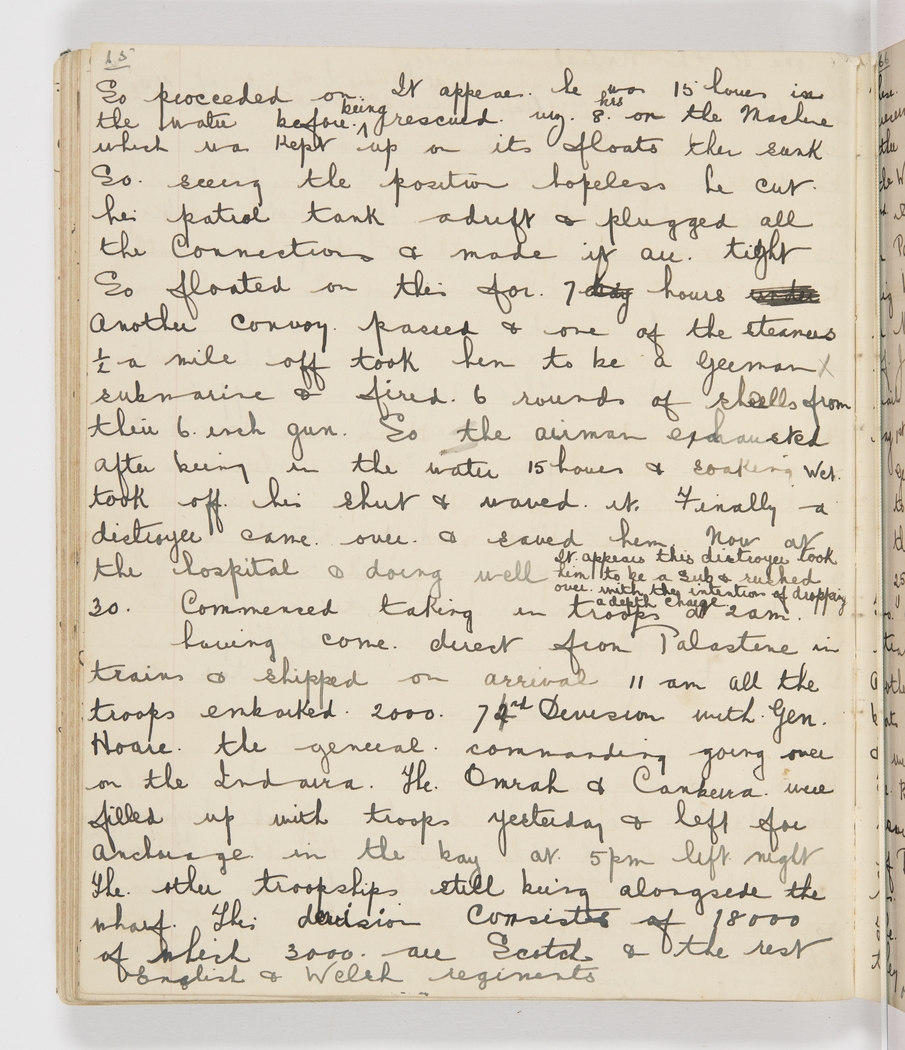 15
So proceeded on. It appears. he was 15 hours in
the water before. being rescued. viz. 8. hrs on the Machine
which was kept up on its floats then sunk
So. seeing the position hopeless he cut.
his patrol tank adrift & plugged all
the Connections & made it air. tight
So floated on this for. 7 day hours under
Another convoy. passed & one of the steamers
½ a mile off took him to be a German X
submarine & fired. 6 rounds of shells from
their 6. inch gun. So the airman exhausted
after being in the water 15 hours & soaking Wet.
took off. his shirt & waved it. Finally a
distroyer came. over. & saved him. Now at
the hospital & doing well It appears this distroyer took
him to be a Sub & rushed
over. with the intention of dropping
a depth charge.
30. Commenced taking in troops at 2am.
having come. direct from Palastene in
trains & shipped on arrival 11 am all the
troops embarked. 2000. 74rd Devision with. Gen.
Hoare. the general. commanding going over
on the Indarra. The. Omrah & Canberra. were
filled up with troops yesterday & left for
anchorage. in the bay at. 5pm left. night
The. other troopships still being alongside the
wharf. This devision Consistes of 18000
of which 3000. are Scotch & the rest
English & Welsh regiments